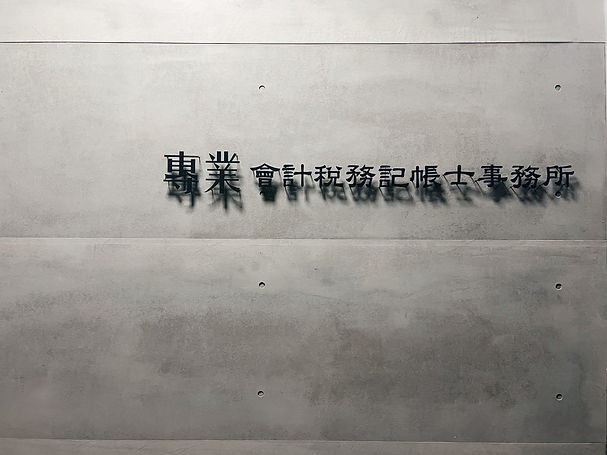 專業 會計稅務記帳士事務所